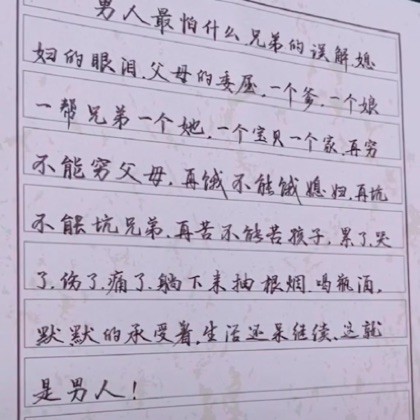 男人最怕什么兄弟的误解.媳
妇的眼泪.父母的委屈.一个爹.一个娘
一帮兄弟一个她.一个宝贝一个家.再穷
不能穷父母.再饿不能饿媳妇.再坑
不能坑兄弟.再苦不能苦孩子.累了.哭
了.伤了.痛了.躺下来抽根烟.喝瓶酒.
默默的承受着.生活还呆继续.这就
是男人!